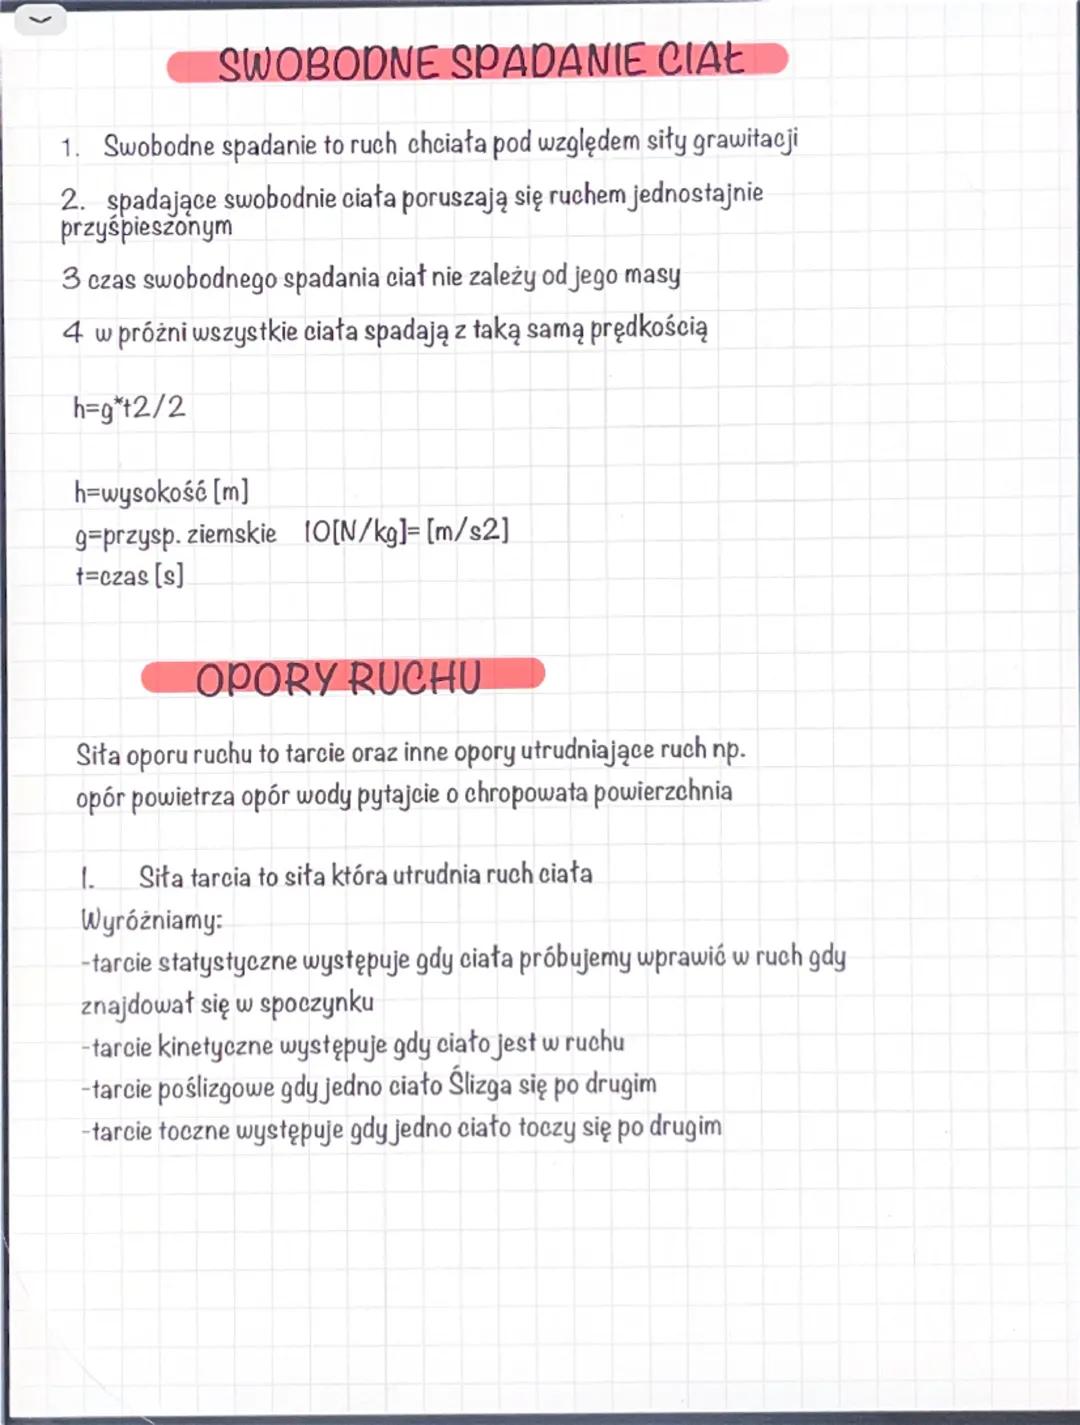 SWOBODNE SPADANIE CIAŁ
1. Swobodne spadanie to ruch chciała pod względem siły grawitacji
2. spadające swobodnie ciała poruszają się ruchem jednostajnie
przyśpieszonym
3 czas swobodnego spadania ciał nie zależy od jego masy
4 w próżni wszystkie ciała spadają z taką samą prędkością
h=g*t2/2
h=wysokość [m]
g=przysp. ziemskie 10[N/kg]= [m/s2]
t=czas [s]
OPORY RUCHU
Siła oporu ruchu to tarcie oraz inne opory utrudniające ruch np.
opór powietrza opór wody pytajcie o chropowata powierzchnia
1. Siła tarcia to siła która utrudnia ruch ciała
Wyróżniamy:
-tarcie statystyczne występuje gdy ciała próbujemy wprawić w ruch gdy
znajdował się w spoczynku
-tarcie kinetyczne występuje gdy ciało jest w ruchu
-tarcie poślizgowe gdy jedno ciało Ślizga się po drugim
-tarcie toczne występuje gdy jedno ciało toczy się po drugim